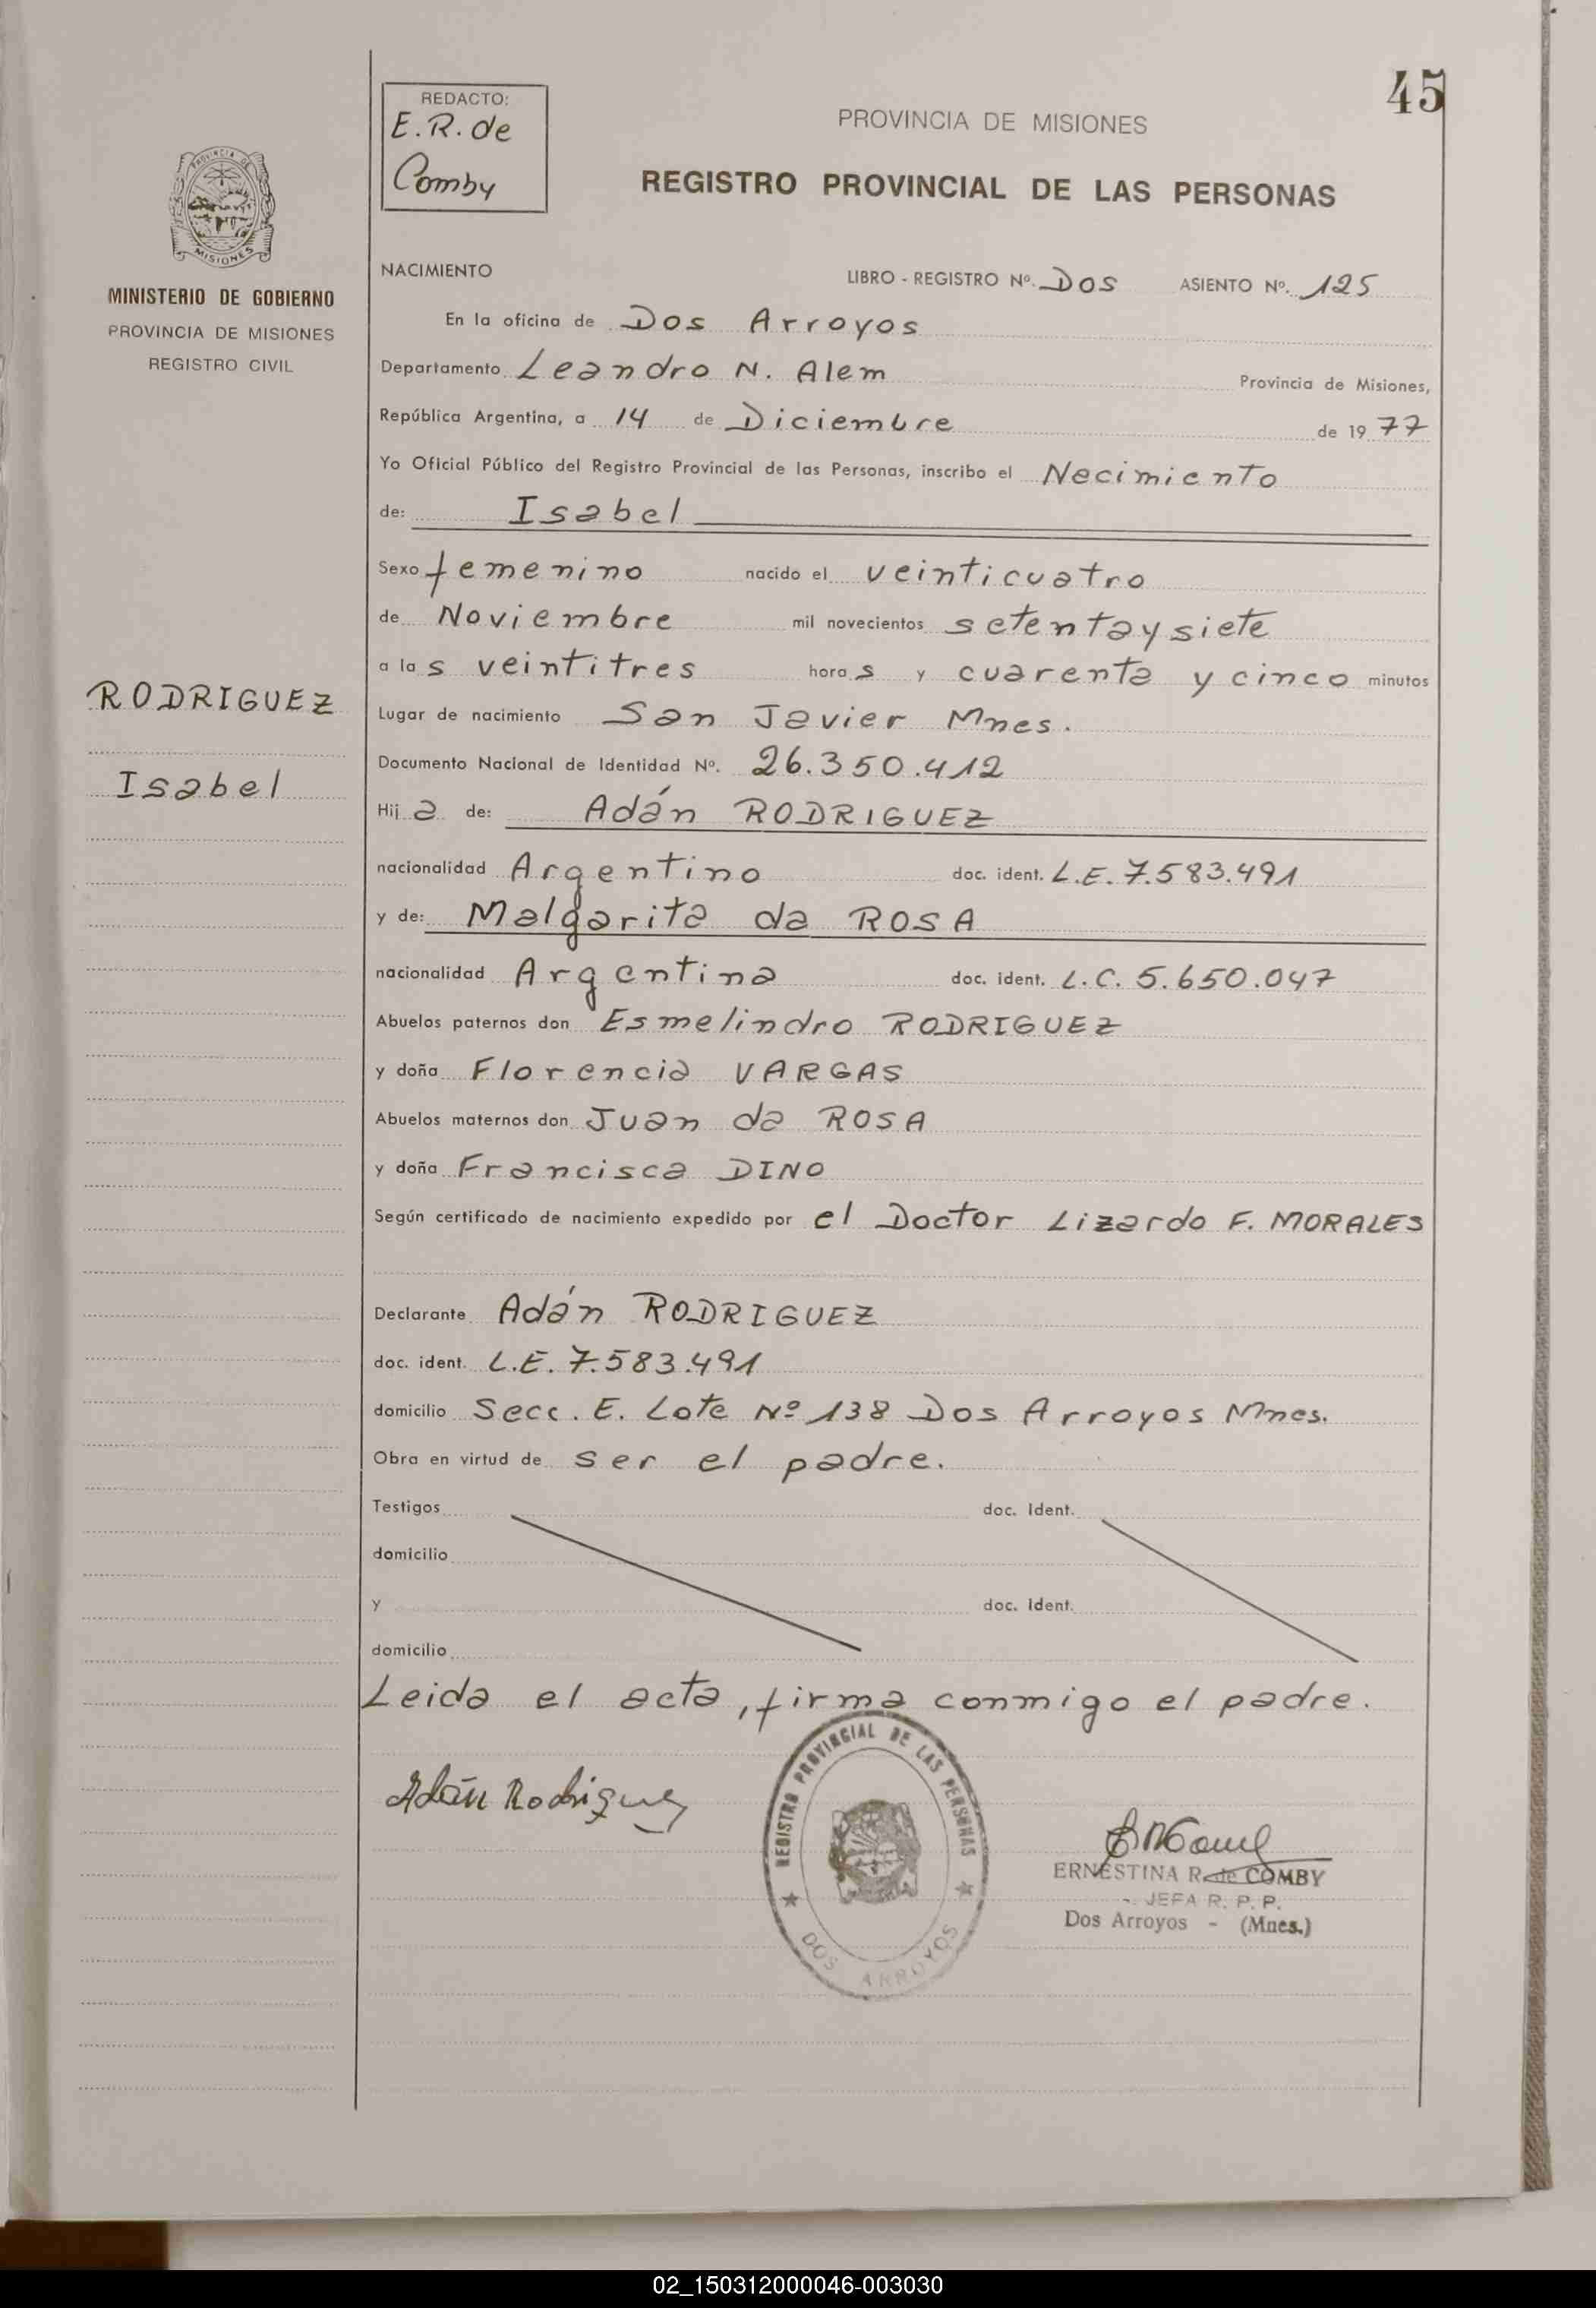 45
REDACTO:
E.R. de
Comby
PROVINCIA DE MISIONES
REGISTRO PROVINCIAL DE LAS PERSONAS
PROVINCIA DE
MISIONES
MINISTERIO DE GOBIERNO
PROVINCIA DE MISIONES
REGISTRO CIVIL
RODRIGUEZ
Isabel
NACIMIENTO LIBRO - REGISTRO Nº. Dos ASIENTO Nº. 125
En la oficina de Dos Arroyos
Departamento Leandro N. Alem Provincia de Misiones,
República Argentina, a 14 de Diciembre de 19 77
Yo Oficial Público del Registro Provincial de las Personas, inscribo el Nacimiento
de: Isabel
Sexo femenino nacido el veinticuatro
de Noviembre mil novecientos setentaysiete
a las veintitres horas y cuarenta y cinco minutos
Lugar de nacimiento San Javier Mnes.
Documento Nacional de Identidad Nº. 26.350.412
Hija de: Adán RODRIGUEZ
nacionalidad Argentino doc. ident. L.E. 7.583.491
y de: Malgarita da ROSA
nacionalidad Argentina doc. ident. L.C. 5.650.047
Abuelos paternos don Esmelindro RODRIGUEZ
y doña Florencia VARGAS
Abuelos maternos don Juan da ROSA
y doña Francisca DINO
Según certificado de nacimiento expedido por el Doctor Lizardo F. MORALES
Declarante Adán RODRIGUEZ
doc. ident. L.E. 7.583.491
domicilio Secc. E. Lote Nº 138 Dos Arroyos Mnes.
Obra en virtud de ser el padre.
Testigos doc. Ident.
domicilio
y doc. Ident.
domicilio
Leida el acta, firma conmigo el padre.
Adán Rodriguez
REGISTRO PROVINCIAL DE LAS PERSONAS
DOS ARROYOS
ERNESTINA R. de COMBY
JEFA R. P. P.
Dos Arroyos - (Mnes.)
02_150312000046-003030